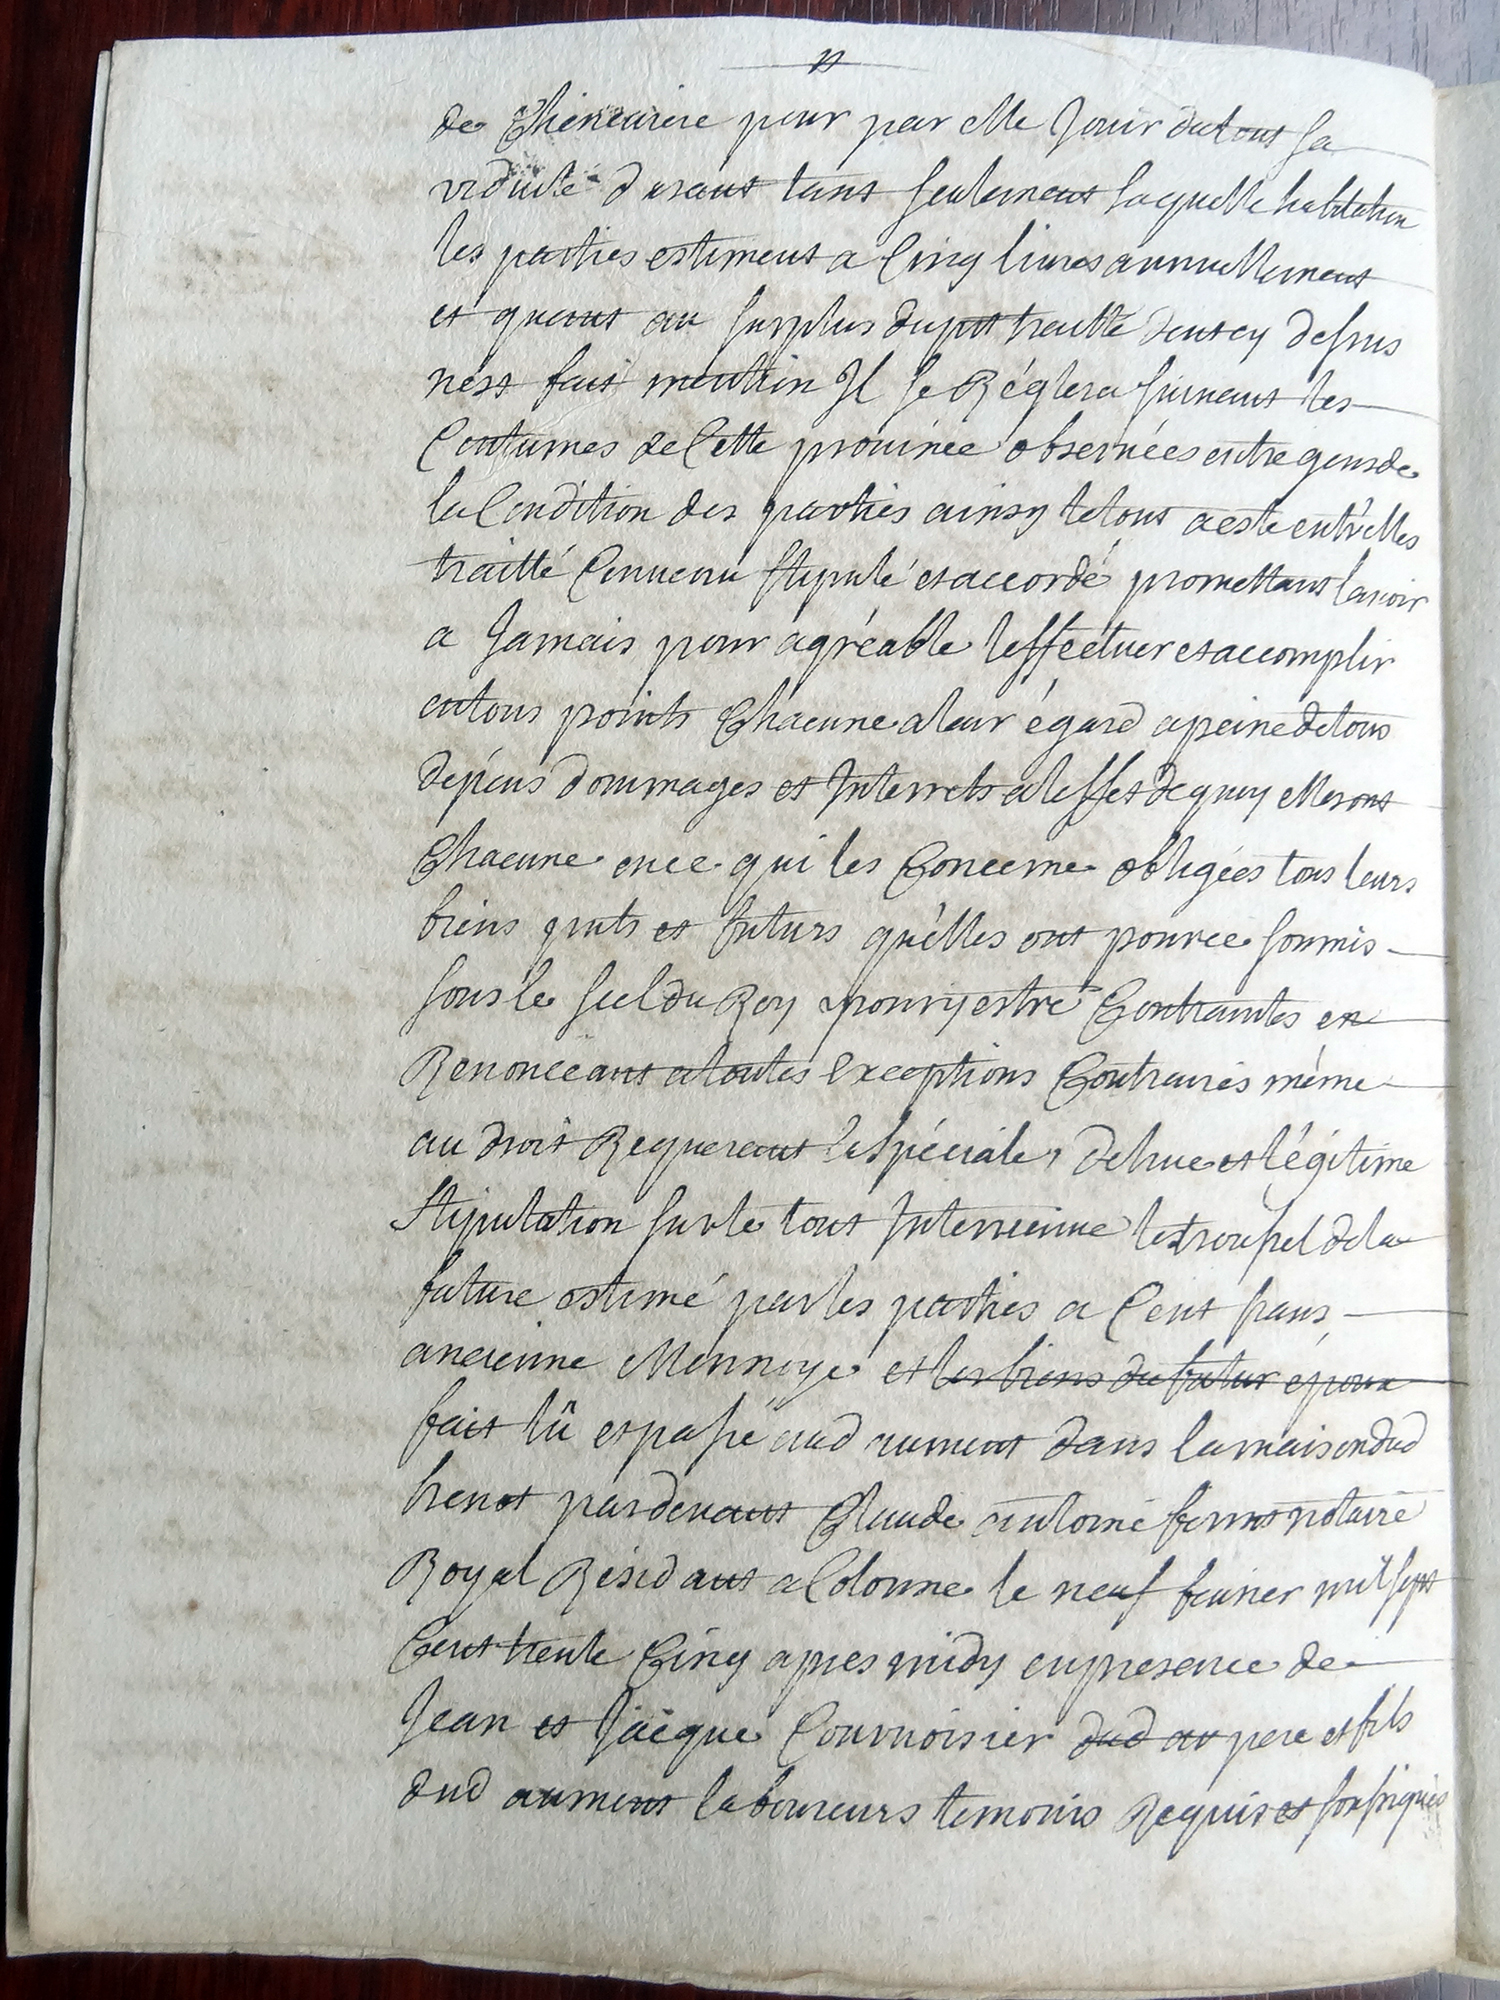 de Cheneviere pour par elle Jouir dutout sa
viduité durant tant seulement laquelle habitation
les parties estiment a Cinq livres annuellement
et quant au surplus du pnt traitté dont cy desus
nest fait mention Il se Réglera suivant les
Coutumes de Cette province observées entre gens de
la Condition des parties ainsy le tout a esté entr'elles
traitté Convenu stipulé et accordé promettant lavoir
a Jamais pour agréable leffectuer et accomplir
entous points Chacune a leur égard a peine de tous
dépens dommages et Interrets a leffet de quoy elles ont
Chacune en ce qui les Concerne obligées tous leurs
biens pnts et futurs qu'elles ont pour ce soumis
sous le scel du Roy pour y estre Contraintes en
Renonceant a toutes Exceptions Contraires même
au droit Requerant la spéciale, de hue et légitime
stipulation sur le tout Intervenue le trousel de la
future estimé par les parties a Cent frans
ancienne Monnoye et les biens du futur époux
fait lû et passé aud aumont dans la maison dud
henot pardevant Claude antoine notaire
Royal Résidant a Colonne le neuf fevrier mil sept
Cent trente Cinq apres midy en presence de
Jean et Jacque Courvoisier dud au pere et fils
dud aumont laboureurs temoins Requis et soussignés